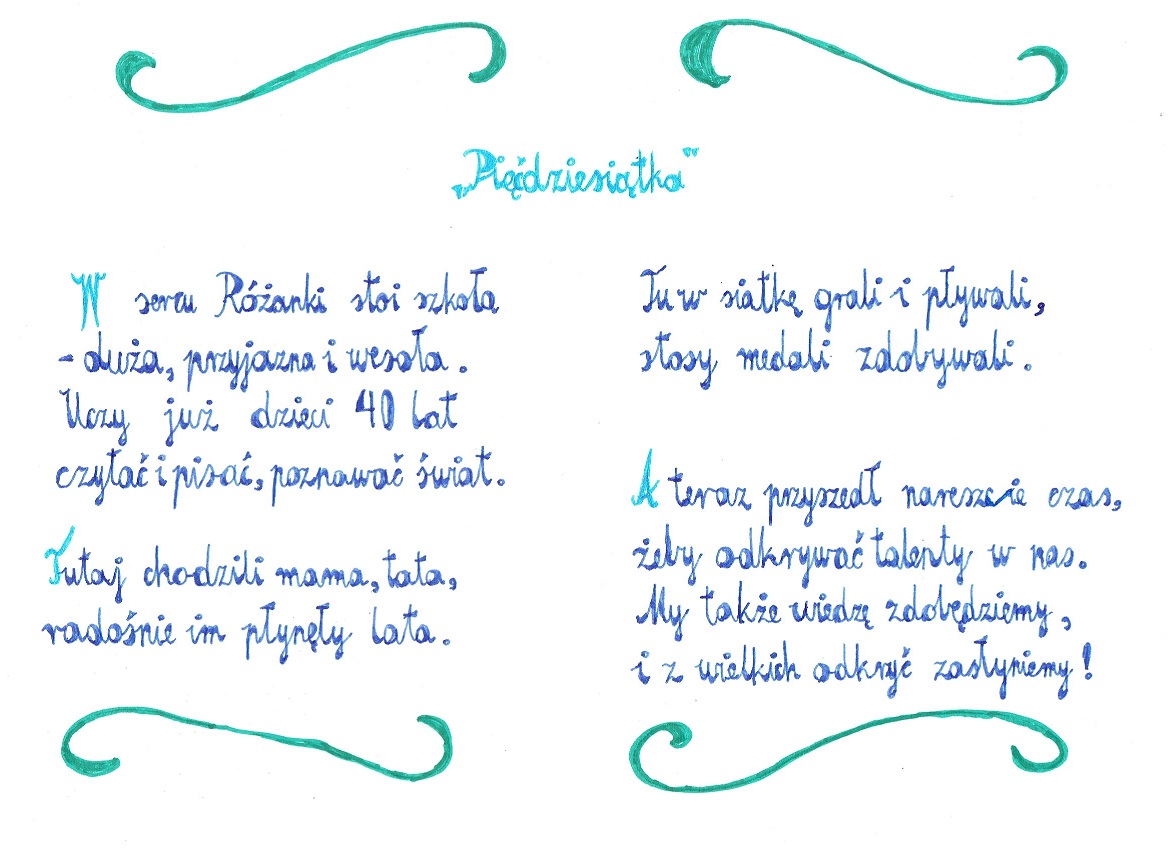 „Pięćdziesiątka"
W sercu Różanki stoi szkoła
- duża, przyjazna i wesoła.
Uczy już dzieci 40 lat
czytać i pisać, poznawać świat.
Tutaj chodzili mama, tata,
radośnie im płynęły lata.
Tu w siatkę grali i pływali,
stosy medali zdobywali.
A teraz przyszedł nareszcie czas,
żeby odkrywać talenty w nas.
My także wiedzę zdobędziemy,
i z wielkich odkryć zasłyniemy!